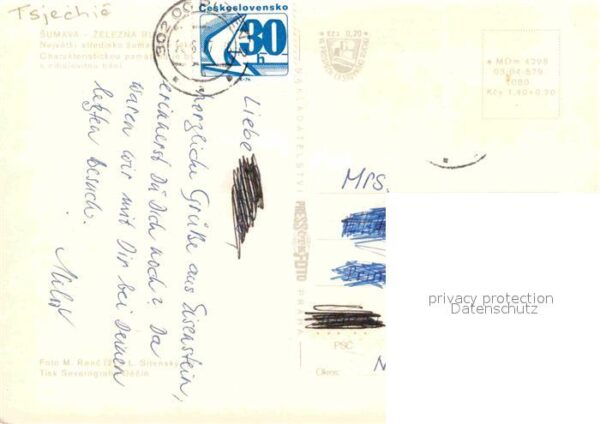 Tsjechië
ŠUMAVA - ŽELEZNÁ
Největší středisko
Charakteristickou
s cibulovitou bání
302 00
Československo
30
h
Kčs 0,20
MDm 4398
03-04 579
1080
Kčs 1,40+0,20
NAKLADATELSTVÍ
PRESSFOTO
Liebe
herzliche Grüße aus Eisenstein,
erinnerst Du Dich noch? Da
waren wir mit Dir bei Deinem
letzten Besuch.
Mrs.
PSČ
Okres:
N
Foto M. Renč L. Sitenský
Tisk Severografia Děčín
privacy protection
Datenschutz